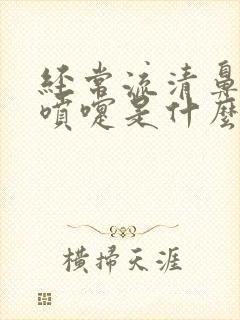 經常流清鼻
噴嚏是什麼
橫掃天涯